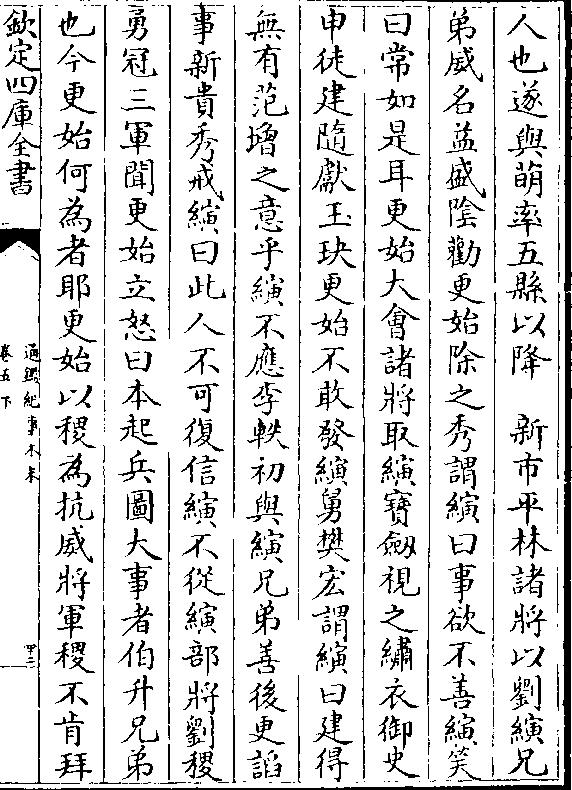 人也遂與萌率五縣以降　新市平林諸將以劉縯兄
弟威名益盛陰勸更始除之秀謂縯曰事欲不善縯笑
曰常如是耳更始大會諸將取縯寶劔視之繡衣御史
申徒建隨獻玉玦更始不敢發縯舅樊宏謂縯曰建得
無有范增之意乎縯不應李軼初與縯兄弟善後更諂
事新貴秀戒縯曰此人不可復信縯不從縯部將劉稷
勇冠三軍聞更始立怒曰本起兵圖大事者伯升兄弟
也今更始何為者耶更始以稷為抗威將軍稷不肯拜
欽定四庫全書
通鑑紀事本末
卷五下
四十三